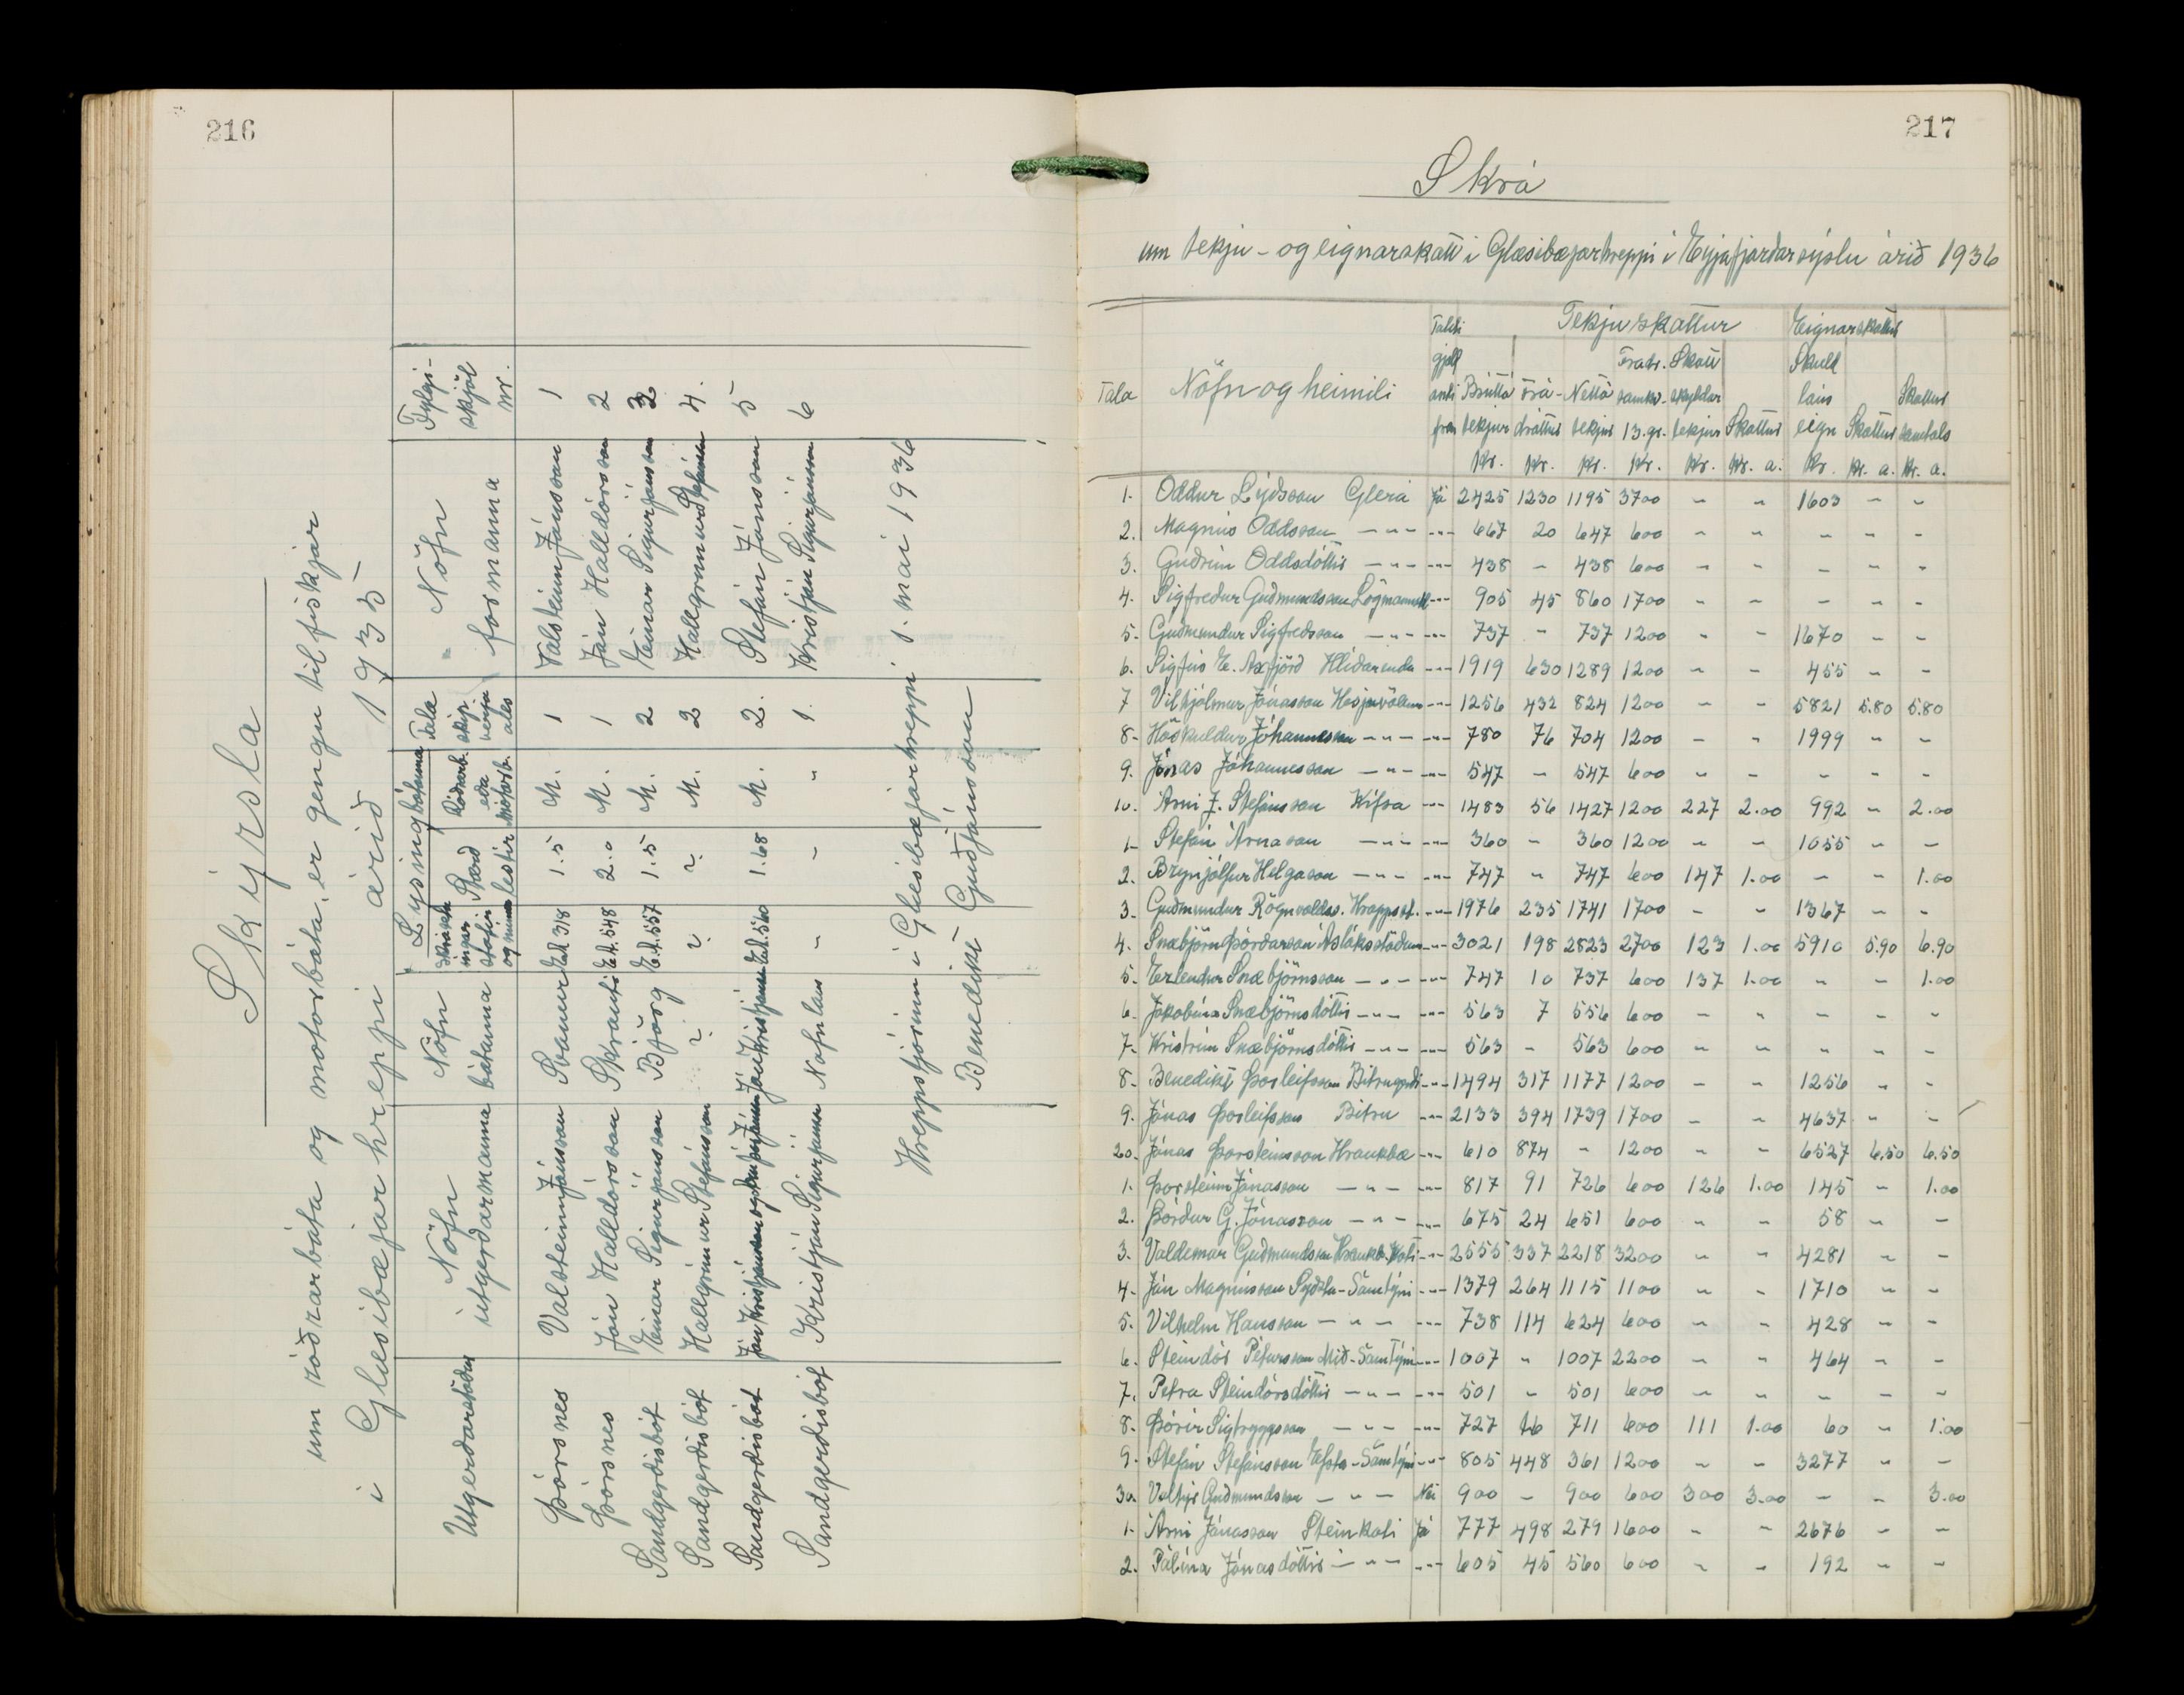 216
Skýrsla
um róðrarbáta og mótorbáta, er gengu til fiskjar
í Glæsibæjarhreppi árið 1935
Útgerðarstaður | Nöfn útgerðarmanna | Nöfn bátanna | Lýsing bátanna: Skrásetningar stafir og númer | Stærð lestir | Róðrarb. eða mótorb. | Tala skipverja alls | Nöfn formanna | Fylgiskjöl nr.
Þórsnes Valsteinn Jónsson Svanur EA 318 1.5 M. 1 Valsteinn Jónsson 1
Þórsnes Jón Halldórsson Skrauti EA. 548 2.0 M. 1 Jón Halldórsson 2
Sandgerðisbót Einar Sigurjónsson Björg EA. 557 1.5 M. 2 Einar Sigurjónsson 3
Sandgerðisbót Hallgrímur Stefánsson ? ? ? M. 2 Hallgrímur Stefánsson 4.
Sandgerðisbót Jón Kristjánsson og Jón Kristjánsson EA. 560 1.68 M. 2. Stefán Jónsson 5
Sandgerðisbót Kristján Sigurjónsson Nafnlaus " - " 1. Kristján Sigurjónsson 6
Hreppstjórinn í Glæsibæjarhreppi 1. maí 1936
Benedikt Guðjónsson
217
Skrá
um tekju- og eignarskatt í Glæsibæjarhreppi í Eyjafjarðarsýslu árið 1936
Tala | Nöfn og heimili | Talin gjöld anti fram | Tekjuskattur: Brúttó tekjur Kr. | Frádráttur Kr. | Nettó tekjur Kr. | Frádr. samkv. 13. gr. Kr. | Skattskyldar tekjur Kr. | Skattur Kr. a. | Eignarskattur: Skuldlaus eign Kr. | Skattur Kr. a. | Skattur samtals Kr. a.
1. Oddur Lýðsson Glerá Já 2425 1230 1195 3700 - - 1603 - -
2. Magnús Oddsson -"- -"- 667 20 647 600 - - - - -
3. Guðrún Oddsdóttir -"- -"- 438 - 438 600 - - - - -
4. Sigfreður Guðmundsson Lögmannshl -"- 905 45 860 1700 - - - - -
5. Guðmundur Sigfredsson -"- -"- 737 - 737 1200 - - 1670 - -
6. Sigfús E. Axfjörð Hlíðarenda -"- 1919 630 1289 1200 - - 455 - -
7 Vilhjálmur Jónasson Hesjuvöllum -"- 1256 432 824 1200 - - 5821 5.80 5.80
8. Höskuldur Jóhannesson -"- -"- 780 76 704 1200 - - 1999 - -
9. Jónas Jóhannesson -"- -"- 547 - 547 600 - - - - -
10. Árni J. Stefánsson Kífsá -"- 1483 56 1427 1200 227 2.00 992 - 2.00
1. Stefán Árnason -"- -"- 360 - 360 1200 - - 1055 - -
2. Brynjólfur Helgason -"- -"- 747 - 747 600 147 1.00 - - 1.00
3. Guðmundur Rögnvaldss. Krappst. -"- 1976 235 1741 1700 - - 1367 - -
4. Snæbjörn Þórðarson Ásláksstöðum -"- 3021 198 2823 2700 123 1.00 5910 5.90 6.90
5. Erlendur Snæbjörnsson -"- -"- 747 10 737 600 137 1.00 - - 1.00
6. Jakobína Snæbjörnsdóttir -"- -"- 563 7 556 600 - - - - -
7. Kristrún Snæbjörnsdóttir -"- -"- 563 - 563 600 - - - - -
8. Benedikt Þorleifsson Bitrugerði -"- 1494 317 1177 1200 - - 1256 - -
9. Jónas Þorleifsson Bitru -"- 2133 394 1739 1700 - - 4637 - -
20. Jónas Þorsteinsson Kraukbæ -"- 610 874 - 1200 - - 6527 6.50 6.50
1. Þorsteinn Jónasson -"- -"- 817 91 726 600 126 1.00 145 - 1.00
2. Þórður G. Jónasson -"- -"- 675 24 651 600 - - 58 - -
3. Valdemar Guðmundsson Kraukb.koti -"- 2555 337 2218 3200 - - 4281 - -
4. Jón Magnússon Syðsta-Samtýni -"- 1379 264 1115 1100 - - 1710 - -
5. Vilhelm Hansson -"- -"- 738 114 624 600 - - 428 - -
6. Steindór Pétursson Mið-Samtýni -"- 1007 - 1007 2200 - - 464 - -
7. Petra Steindórsdóttir -"- -"- 501 - 501 600 - - - - -
8. Þórir Sigtryggsson -"- -"- 727 16 711 600 111 1.00 60 - 1.00
9. Stefán Stefánsson Efsta-Samtýni -"- 805 448 361 1200 - - 3277 - -
30. Valtýr Guðmundsson -"- Nei 900 - 900 600 300 3.00 - - 3.00
1. Árni Jónasson Steinkoti Já 777 498 279 1600 - - 2676 - -
2. Pálína Jónasdóttir -"- -"- 605 45 560 600 - - 192 - -